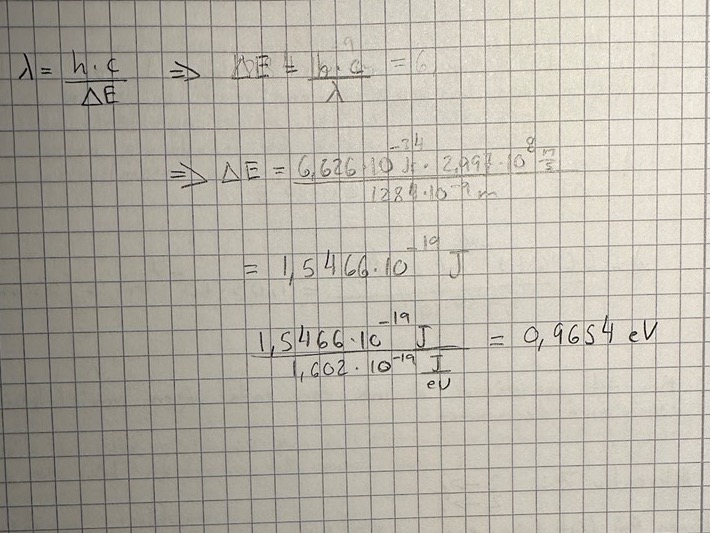 λ = h·c / ΔE => ΔE = h·c / λ = 6
=> ΔE = 6,626·10⁻³⁴ Js · 2,997·10⁸ m/s / 1284·10⁻⁹ m
= 1,5466·10⁻¹⁹ J
1,5466·10⁻¹⁹ J / 1,602·10⁻¹⁹ J/eV = 0,9654 eV